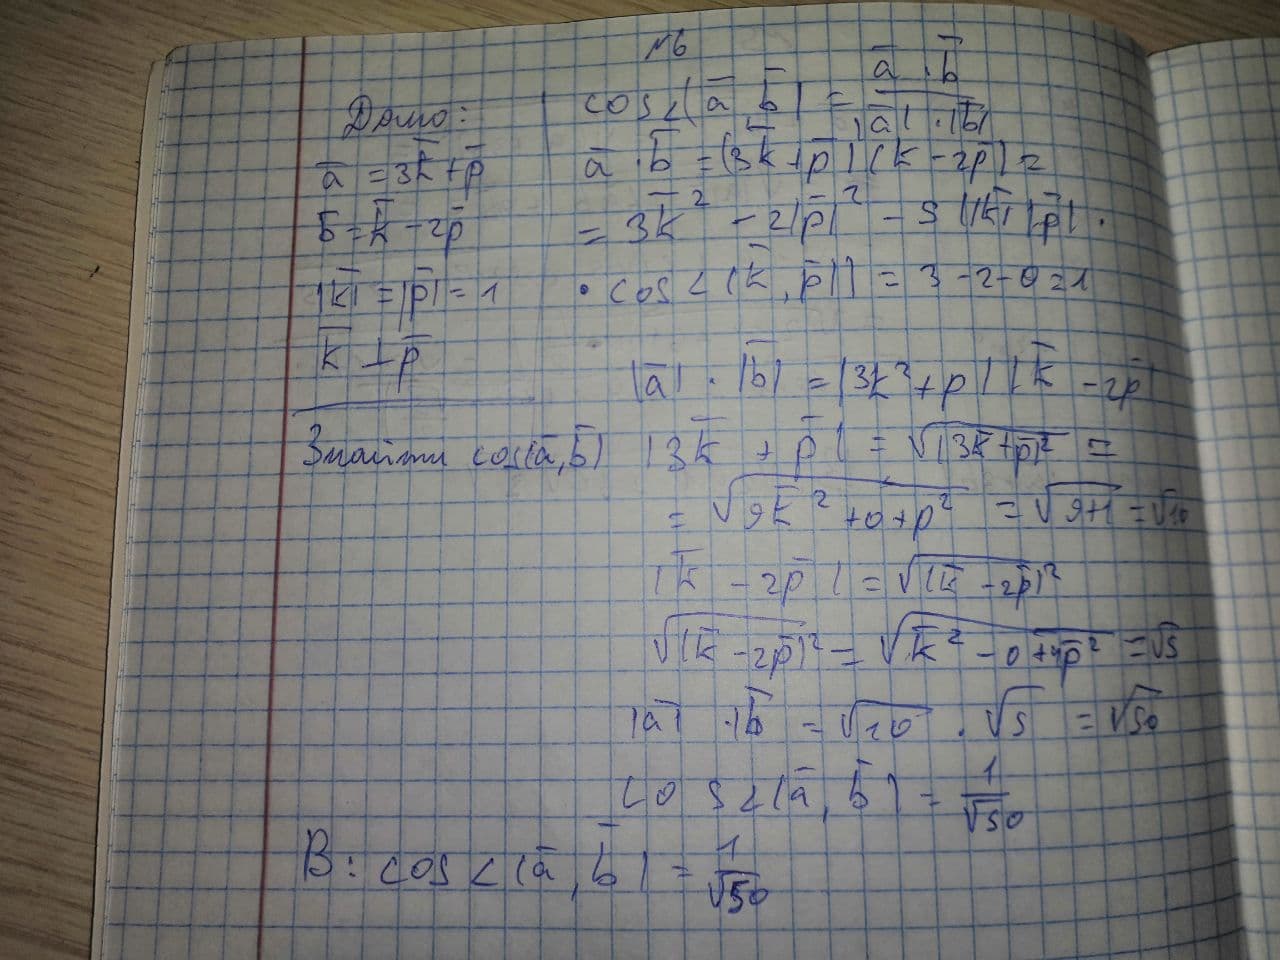 №6
Дано:
a̅ = 3k̅ + p̅
b̅ = k̅ - 2p̅
|k̅| = |p̅| = 1
k̅ ⊥ p̅
Знайти cos(a̅, b̅)
cos<(a̅ b̅) = a̅ · b̅ / |a̅| · |b̅|
a̅ · b̅ = (3k̅ + p̅)(k̅ - 2p̅) =
= 3k̅² - 2|p̅|² - 5(|k̅| |p̅| ·
· cos<(k̅, p̅)) = 3 - 2 - 0 = 1
|a̅| · |b̅| = |3k² + p| |k̅ - 2p̅|
|3k̅ + p̅| = √(3k̅ + p̅)² =
= √9k̅² + 0 + p² = √9+1 = √10
|k̅ - 2p̅| = √(k̅ - 2p̅)²
√(k̅ - 2p̅)² = √k̅² - 0 + 4p̅² = √5
|a̅| · |b̅ = √10 · √5 = √50
cos<(a̅, b̅) = 1/√50
В: cos<(a̅, b̅) = 1/√50